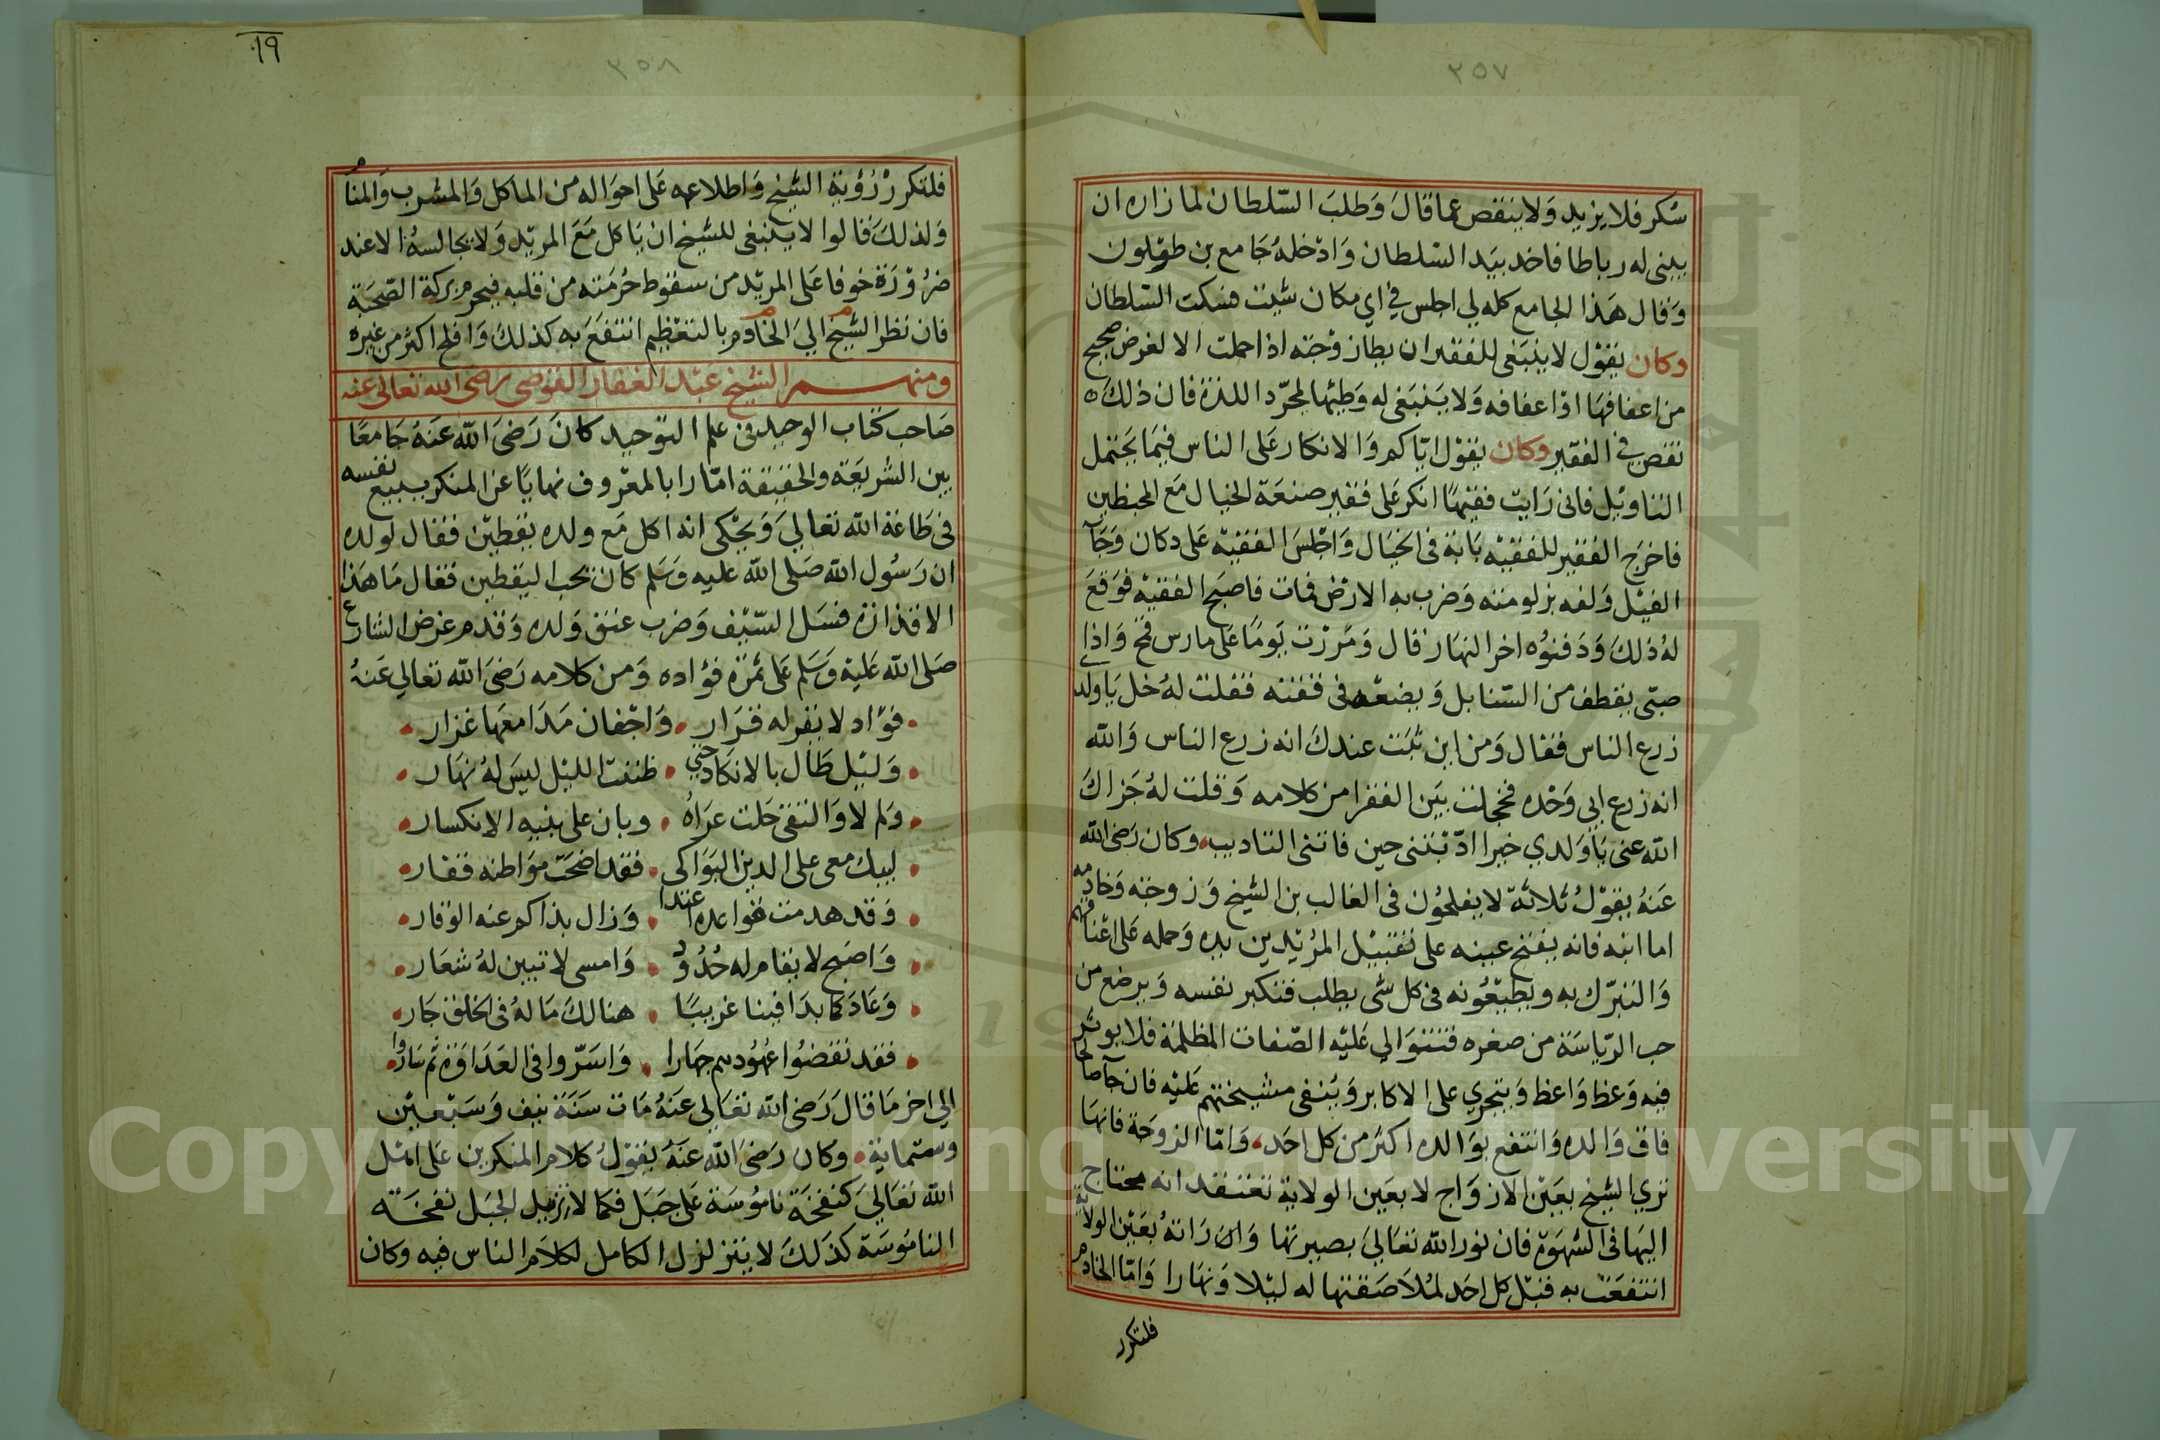 ٣٥٧
سكر فلا يزيد ولا ينقص عما قال وطلب السلطان لما زاره ان
يبنى له رباطا فاخد بيد السلطان وادخله جامع بن طولون
وقال هذا الجامع كله لي اجلس في اي مكان شيت فسكت السلطان
وكان يقول لا ينبغى للفقير ان يطا زوجته اذا حملت الا لغرض صحيح
من اعفافها او اعفافه ولا ينبغى له وطئها لمجرد اللذة فان ذلك
نقص في الفقير وكان يقول اياكم والانكار على الناس فيما يحتمل
التاويل فانى رايت فقيها انكر على فقير صنعة الخيال مع المحبظين
فاخرج الفقير للفقيه بابة فى الخيال واجلس الفقيه على دكان وجآ
الفيل ولفه بزلومته وضرب به الارض فمات فاصبح الفقيه فوقع
له ذلك ودفنوه اخر النهار قال ومررت يوما على مارس قمح واذا
صبى يقطف من السنابل ويضعه فى قفته فقلت له خل يا ولد
زرع الناس فقال ومن اين ثبت عندك انه زرع الناس والله
انه زرع ابي وحده فخجلت بين الفقرا من كلامه وقلت له جزاك
الله عنى يا ولدي خيرا ادبتنى حين فاتنى التاديب وكان رضى الله
عنه يقول ثلاثة لا يفلحون فى الغالب بن الشيخ وزوجته وخادمه
اما ابنه فانه يفتح عينه على تقبيل المريدين يده وحمله على اعناقهم
والتبرك به ويطيعونه فى كل شى يطلب فتكبر نفسه ويرضع من
حب الرياسة من صغره فتتوالي عليه الصفات المظلمة فلا يوثر
فيه وعظ واعظ ويتجري على الاكابر وينفى مشيختهم عليه فان جآ صالحا
فاق والده وانتفع بوالده اكثر من كل احد واما الزوجة فانها
تري الشيخ بعين الازواج لا بعين الولاية تعتقد انه محتاج
اليها فى الشهوة فان نور الله تعالي بصيرتها وان راته بعين الولاية
انتفعت به قبل كل احد لملاصقتها له ليلا ونهارا واما الخادم
فلتكرر
١٩
٣٥٨
فلتكرر رؤية الشيخ واطلاعه على احواله من الماكل والمشرب والمنام
ولذلك قالوا لا ينبغى للشيخ ان ياكل مع المريد ولا يجالسه الا عند
ضرورة خوفا على المريد من سقوط حرمته من قلبه فيحرم بركة الصحبة
فان نظر الشيخ الي الخادم بالتعظيم انتفع به كذلك وافلح اكثر من غيره
ومنهم الشيخ عبد الغفار القوصى رضى الله تعالى عنه
صاحب كتاب الوحيد فى علم التوحيد كان رضى الله عنه جامعا
بين الشريعة والحقيقة امارا بالمعروف نهايا عن المنكر يبيع نفسه
فى طاعة الله تعالي ويحكى انه اكل مع ولده يقطين فقال لولده
ان رسول الله صلى الله عليه وسلم كان يحب اليقطين فقال ما هذا
الا قذارة فسل السيف وضرب عنق ولده وقدم غرض الشارع
صلى الله عليه وسلم على ثمرة فؤاده ومن كلامه رضى الله تعالي عنه
فؤاد لا يقر له قرار واجفان مدامعها غزار
وليل طال بالانكاد حتي ظننت الليل ليس له نهار
ولم لا والتقى حلت عراه وبان على بنيه الانكسار
ليبك معى على الدين البواكى فقد اضحت مواطنه قفار
وقد هدمت قواعده اعتدا وزال بذاكم عنه الوقار
واصبح لا يقام له حدود وامسى لا تبين له شعار
وعاد كما بدا فينا غريبا هنالك ما له فى الخلق جار
فقد نقضوا عهودهم جهارا واسروا فى العداوة ثم ساروا
الي اخر ما قال رضى الله تعالي عنه مات سنة نيف وسبعين
وستمائة وكان رضى الله عنه يقول كلام المنكرين على اهل
الله تعالي كنفخة ناموسة على جبل فكما لا يزيل الجبل نفخة
الناموسة كذلك لا يتزلزل الكامل لكلام الناس فيه وكان
Copyright © King Saud University